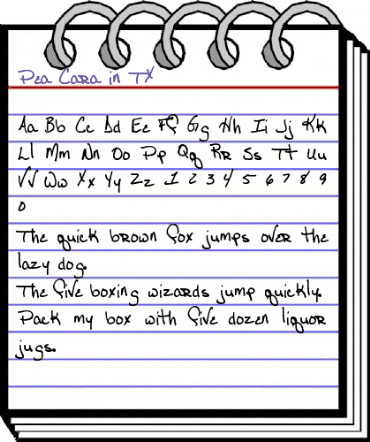 Pea Cara in TX
Aa Bb Cc Dd Ee Ff Gg Hh Ii Jj Kk
Ll Mm Nn Oo Pp Qq Rr Ss Tt Uu
Vv Ww Xx Yy Zz 1 2 3 4 5 6 7 8 9
0
The quick brown fox jumps over the
lazy dog.
The five boxing wizards jump quickly.
Pack my box with five dozen liquor
jugs.